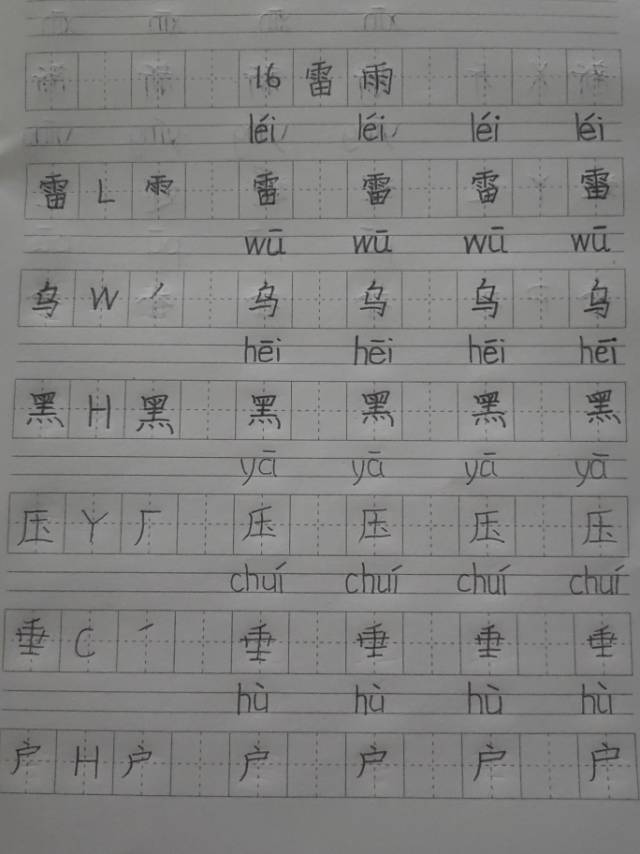 16 雷雨
léi léi léi léi
雷 L 雨 雷 雷 雷 雷
wū wū wū wū
乌 W ノ 乌 乌 乌 乌
hēi hēi hēi hēi
黑 H 黑 黑 黑 黑 黑
yā yā yā yā
压 Y 厂 压 压 压 压
chuí chuí chuí chuí
垂 C ノ 垂 垂 垂 垂
hù hù hù hù
户 H 户 户 户 户 户